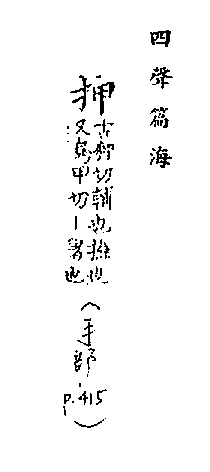 四聲篇海
押
古狎切輔也擸也
又烏甲切｜署也
(手部
p.415)